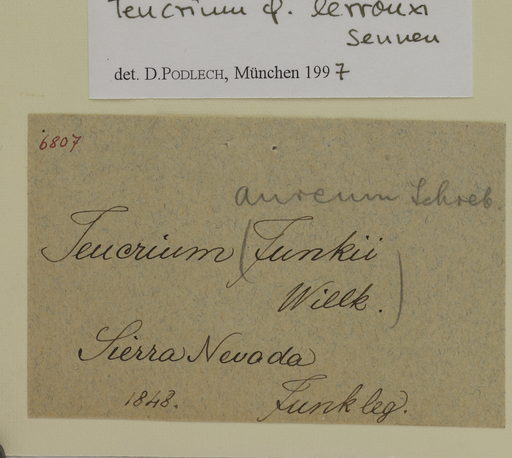 Teucrium cf. lerrouxi
Sennen
det. D.PODLECH, München 1997
6807
aureum Schreb.
Teucrium (Funkii
Willk.)
Sierra Nevada
1848.
Funk leg.